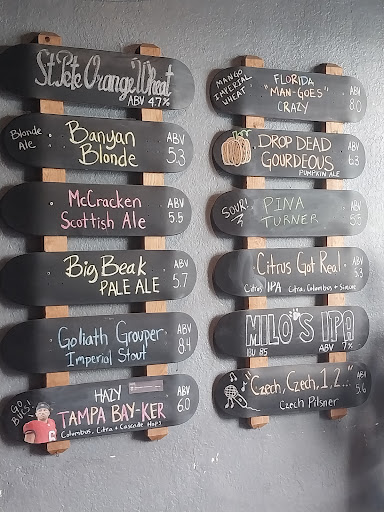 St. Pete Orange Wheat
ABV 4.7%
Blonde
Ale
Banyan
Blonde
ABV
5.3
McCracken
Scottish Ale
ABV
5.5
Big Beak
PALE ALE
ABV
5.7
Goliath Grouper
Imperial Stout
ABV
8.4
GO
BUCS!
HAZY
TAMPA BAY-KER
Columbus, Citra + Cascade Hops
ABV
6.0
MANGO
IMPERIAL
WHEAT
FLORIDA
"MAN-GOES"
CRAZY
ABV
8.0
DROP DEAD
GOURDEOUS
PUMPKIN ALE
ABV
6.3
SOUR!
PINA
TURNER
ABV
Citrus Got Real
Citrus IPA Citra, Columbus + Simcoe
ABV
MILO'S IPA
IBU 85 ABV 7%
"Czech, Czech, 1, 2..."
Czech Pilsner
ABV
5.6